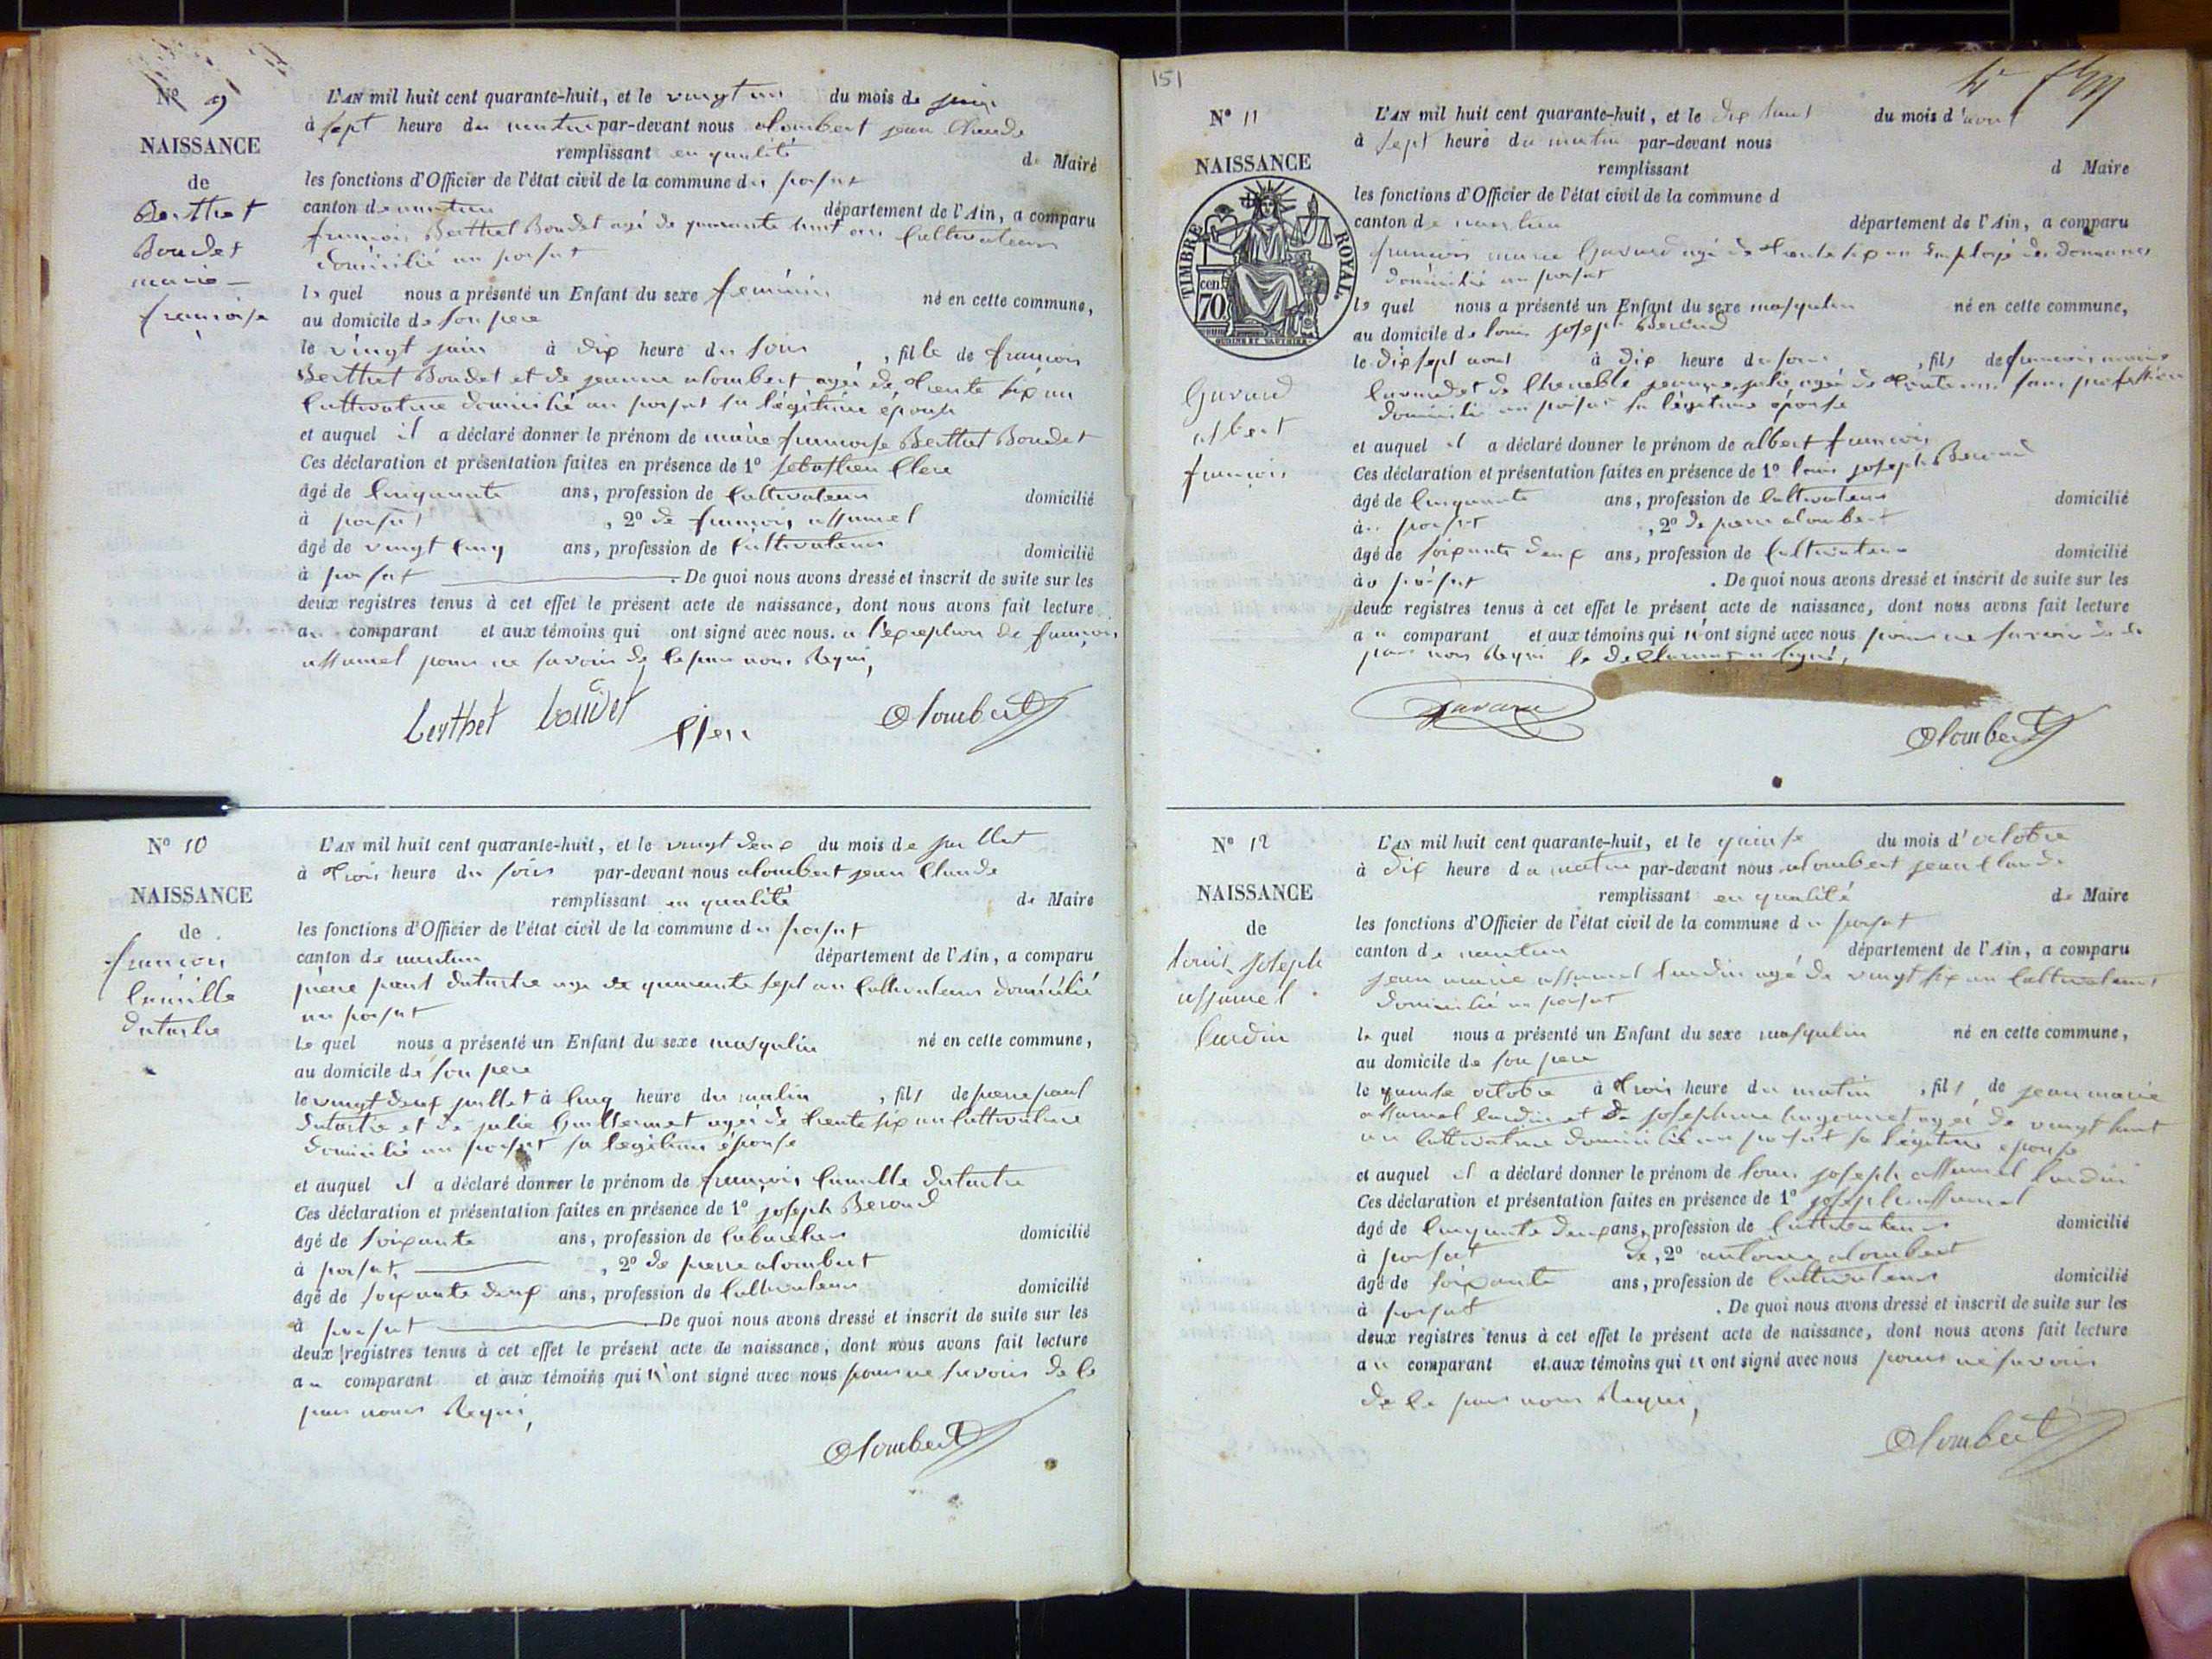 N° 9
NAISSANCE
de
Berthet
Boudet
marie
françoise
L'AN mil huit cent quarante-huit, et le vingt un du mois de juin
à sept heure du matin par-devant nous alombert jean Claude
remplissant en qualité de Maire
les fonctions d'Officier de l'état civil de la commune du poisat
canton de nantua département de l'Ain, a comparu
françois Berthet Boudet agé de quarante huit an Cultivateur
domicilié au poisat
le quel nous a présenté un Enfant du sexe feminin né en cette commune,
au domicile de son pere
le vingt juin à dix heure du soir, fille de françois
Berthet Boudet et de jeanne alombert agée de trente six an
Cultivatrice domicilié au poisat sa légitime épouse
et auquel il a déclaré donner le prénom de marie françoise Berthet Boudet
Ces déclaration et présentation faites en présence de 1° sebastien Clerc
âgé de Cinquante ans, profession de Cultivateur domicilié
à poisat, 2° de françois assumel
âgé de vingt Cinq ans, profession de Cultivateur domicilié
à poisat. De quoi nous avons dressé et inscrit de suite sur les
deux registres tenus à cet effet le présent acte de naissance, dont nous avons fait lecture
au comparant et aux témoins qui ont signé avec nous. a l'exception de françois
assumel pour ne savoir de ce par nous Requi,
berthet boudet Clerc Alombert
N° 10
NAISSANCE
de
françois
Camille
dutartre
L'AN mil huit cent quarante-huit, et le vingt deux du mois de juillet
à trois heure du soir par-devant nous alombert jean Claude
remplissant en qualité de Maire
les fonctions d'Officier de l'état civil de la commune du poisat
canton de nantua département de l'Ain, a comparu
pierre paul dutartre age de quarante sept an Cultivateur domicilié
au poisat
le quel nous a présenté un Enfant du sexe masqulin né en cette commune,
au domicile de son pere
le vingt deux juillet à Cinq heure du matin, fils de pierre paul
dutartre et de julie Guillermet agée de trente six an Cultivatrice
domicilié au poisat sa legitime épouse
et auquel il a déclaré donner le prénom de françois Camille dutartre
Ces déclaration et présentation faites en présence de 1° joseph Beroud
âgé de soixante ans, profession de domicilié
à poisat, 2° de pierre alombert
âgé de soixante deux ans, profession de Cultivateur domicilié
à poisat. De quoi nous avons dressé et inscrit de suite sur les
deux registres tenus à cet effet le présent acte de naissance, dont nous avons fait lecture
au comparant et aux témoins qui n'ont signé avec nous pour ne savoir de ce
par nous Requi,
Alombert
151
N° 11
NAISSANCE
TIMBRE ROYAL
70 cen.
Gavard
albert
françois
L'AN mil huit cent quarante-huit, et le dix huit du mois d'aout
à sept heure du matin par-devant nous
remplissant d Maire
les fonctions d'Officier de l'état civil de la commune d
canton de nantua département de l'Ain, a comparu
françois marie Gavard agé de trente six an Employé des douannes
domicilié au poisat
le quel nous a présenté un Enfant du sexe masqulin né en cette commune,
au domicile de louis joseph Beroud
le dix sept aout à dix heure du soir, fils de françois marie
Gavard et de jeanne julie agée de trente sans profession
domicilié au poisat sa légitime épouse
et auquel il a déclaré donner le prénom de albert françois
Ces déclaration et présentation faites en présence de 1° louis joseph Beroud
âgé de Cinquante ans, profession de Cultivateur domicilié
au poisat, 2° de pierre alombert
âgé de soixante deux ans, profession de Cultivateur domicilié
au poisat. De quoi nous avons dressé et inscrit de suite sur les
deux registres tenus à cet effet le présent acte de naissance, dont nous avons fait lecture
au comparant et aux témoins qui n'ont signé avec nous pour ne savoir de ce
par nous Requi le a signé,
Gavard
Alombert
N° 12
NAISSANCE
de
louis joseph
assumel
lurdin
L'AN mil huit cent quarante-huit, et le quinse du mois d'octobre
à dix heure du matin par-devant nous alombert jean Claude
remplissant en qualité de Maire
les fonctions d'Officier de l'état civil de la commune du poisat
canton de nantua département de l'Ain, a comparu
jean marie assumel lurdin agé de vingt six an Cultivateur
domicilié au poisat
le quel nous a présenté un Enfant du sexe masqulin né en cette commune,
au domicile de son pere
le quinse octobre à trois heure du matin, fils de jean marie
assumel lurdin et de josephine agée de vingt huit
an Cultivatrice domicilié au poisat sa légitime épouse
et auquel il a déclaré donner le prénom de louis joseph assumel lurdin
Ces déclaration et présentation faites en présence de 1° joseph assumel
âgé de Cinquante deux ans, profession de Cultivateur domicilié
à poisat de, 2° antoine alombert
âgé de soixante ans, profession de Cultivateur domicilié
à poisat. De quoi nous avons dressé et inscrit de suite sur les
deux registres tenus à cet effet le présent acte de naissance, dont nous avons fait lecture
au comparant et aux témoins qui n'ont signé avec nous pour ne savoir
de ce par nous Requi,
Alombert